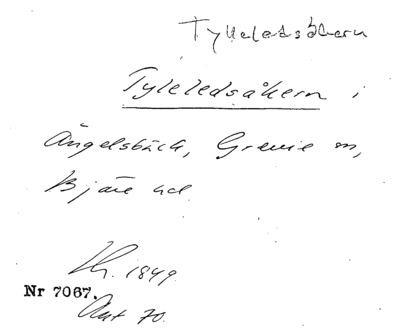 Tylleledsåkern
Tyleledsåkern i
Ängelsbäck, Grevie sn,
Bjäre hd
Kr. 1849.
Nr 7067.
Ant 70.